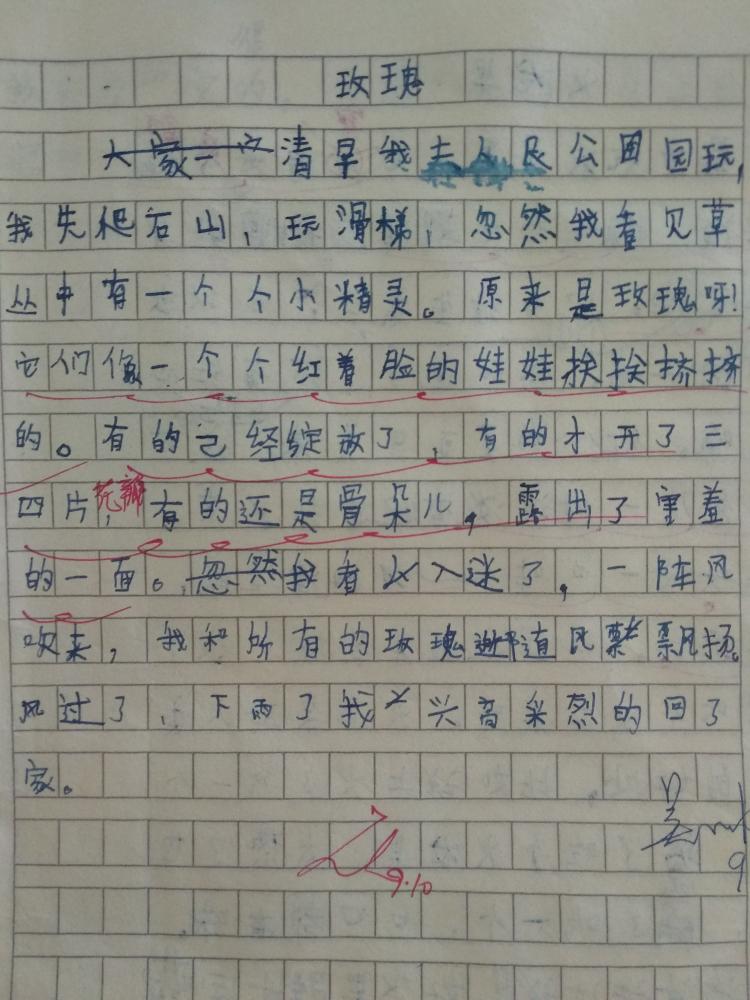 玫瑰
清早我去人民公园园玩,
我先爬石山,玩滑梯,忽然我看见草
丛中有一个个小精灵。原来是玫瑰呀!
它们像一个个红着脸的娃娃挨挨挤挤
的。有的己经绽放了,有的才开了三
四片花瓣,有的还是骨朵儿,露出了害羞
的一面。我看入迷了,一阵风
吹来,我和所有的玫瑰随风飘扬。
风过了,下雨了我兴高采烈的回了
家。
9.10